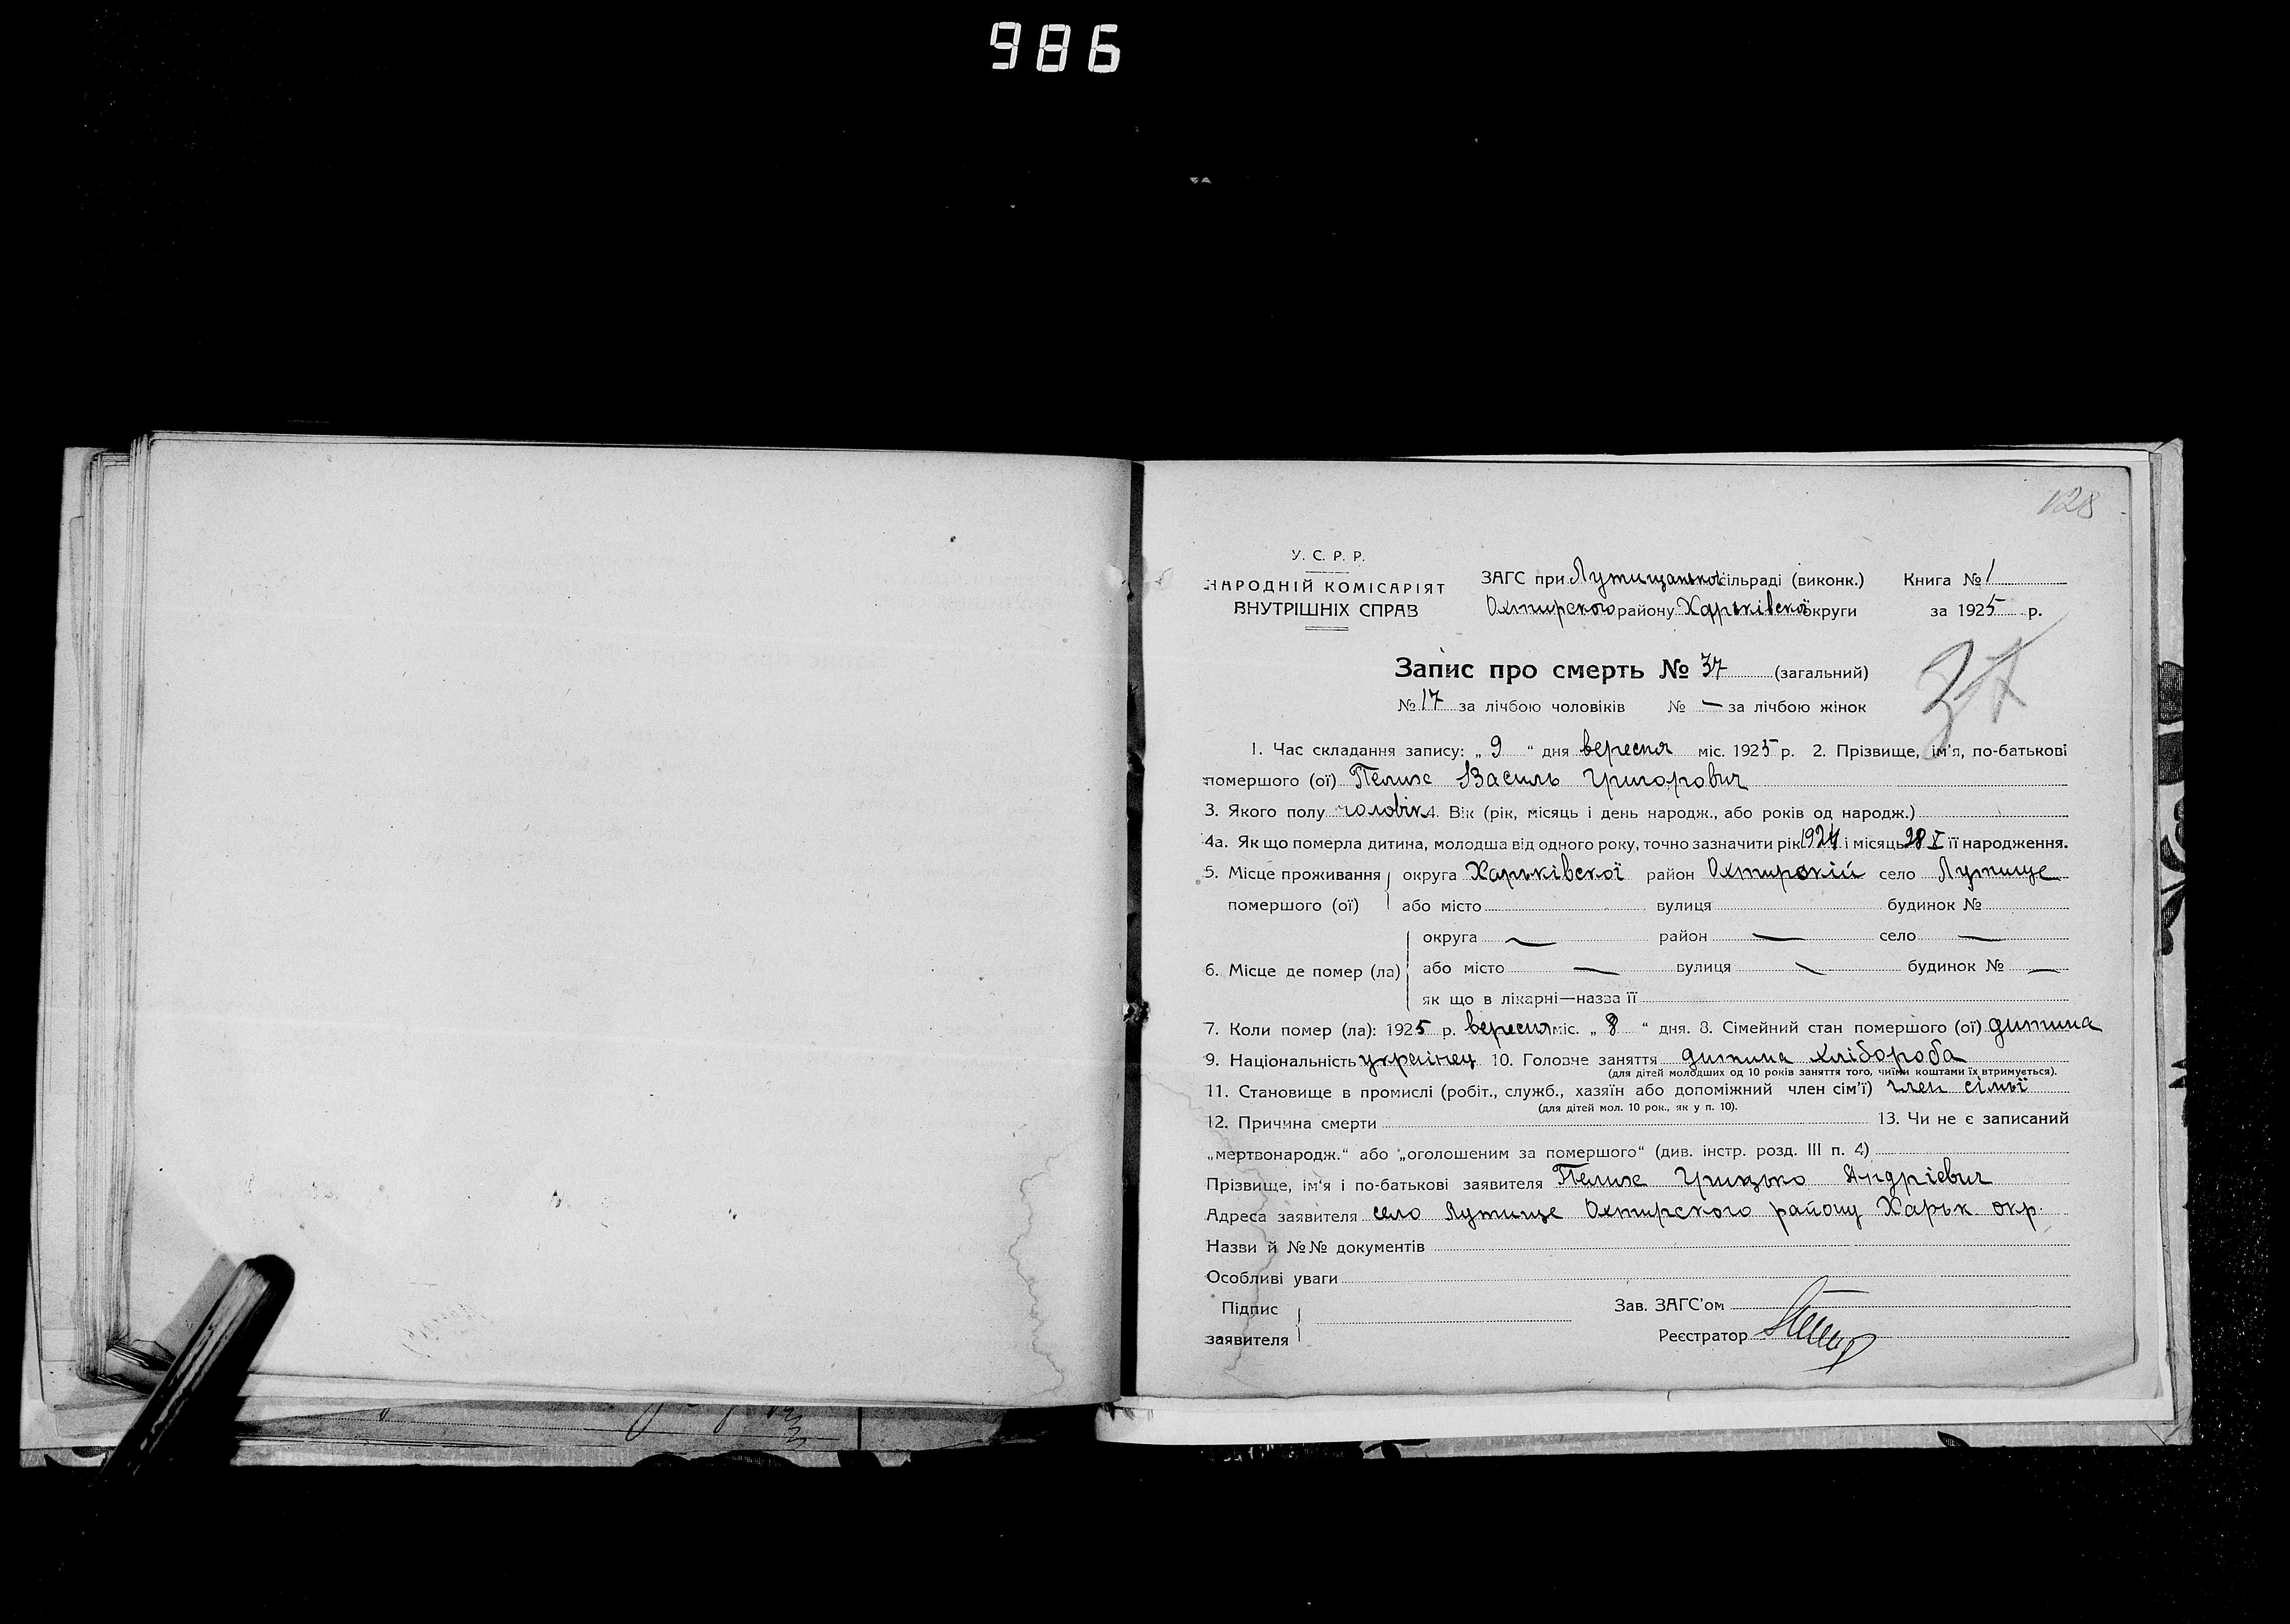 986
128
У. С. Р. Р.
НАРОДНІЙ КОМІСАРІЯТ
ВНУТРІШНІХ СПРАВ
ЗАГС при Лутищанської сільраді (виконк.) Книга № 1
Охтирского району Харьківскої округи за 1925 р.
Запис про смерть № 37 (загальний)
37
№ 17 за лічбою чоловіків № — за лічбою жінок
1. Час складання запису: „ 9 “ дня вересня міс. 1925 р. 2. Прізвище, ім'я, по-батькові
помершого (ої) Пелих Василь Григорович
3. Якого полу чоловік 4. Вік (рік, місяць і день народж., або років од народж.)
4а. Як що померла дитина, молодша від одного року, точно зазначити рік 1924 і місяць 28 X її народження.
5. Місце проживання округа Харьківської район Охтирскій село Лутище
помершого (ої) або місто вулиця будинок №
округа — район — село —
6. Місце де помер (ла) або місто — вулиця — будинок № —
як що в лікарні—назва її
7. Коли помер (ла): 1925 р. вересня міс. „ 8 “ дня. 8. Сімейний стан помершого (ої) дитина
9. Національність украінец 10. Головне заняття дитина хлібороба
(для дітей молодших од 10 років заняття того, чиїми коштами їх втримується).
11. Становище в промислі (робіт., служб., хазяїн або допоміжний член сім'ї) член сімьї
(для дітей мол. 10 рок., як у п. 10).
12. Причина смерти 13. Чи не є записаний
„мертвонародж.“ або „оголошеним за помершого“ (див. інстр. розд. III п. 4)
Прізвище, ім'я і по-батькові заявителя Пелих Грицько Андрієвич
Адреса заявителя село Лутище Охтирского району Харьк. окр.
Назви й №№ документів
Особливі уваги
Підпис Зав. ЗАГС'ом
заявителя Реєстратор